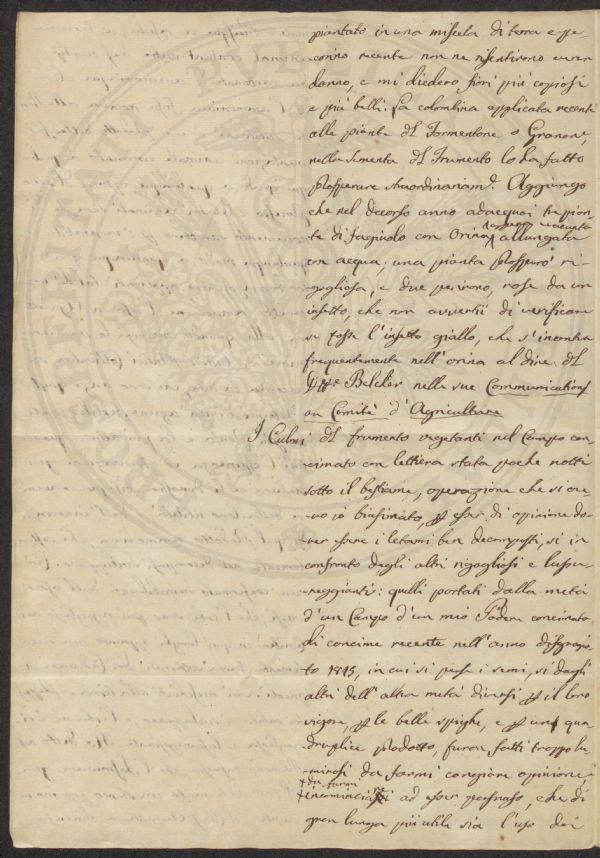 piantato in una miscela di terra e pe-
corino recente non ne risentirono verun
danno, e mi diedero fiori più copiosi
e più belli. La colombina applicata recente
alle piante del Formentone o Granone,
nella sementa del Frumento lo ha fatto
prosperare straordinariam.e Aggiungo
che nel decorso anno adacquai tre pian-
te di fagiuolo con Orina allungata
con acqua; una pianta prosperò ri-
gogliosa, e due perirono, rose da un
insetto, che non avvertii di verificare
se fosse l'insetto giallo, che s'incontra
frequentemente nell'orina al dire del
Belcher nelle sue Communications
au Comité d'Agriculture
I Culmi del frumento vegetanti nel Campo con-
cimato con lettiera stata poche notti
sotto il bestiame, operazione che si ave-
vo io biasimato, per esser di opinione do-
ver essere i letami ben decomposti, si in
confronto degli altri rigogliosi e lussu-
reggianti: quelli portati dalla metà
d'un Campo d'un mio Podere concimato
di concime recente nell'anno disgrazia-
to 1815, in cui si perse i semi, si dagli
altri dell'altra metà diversi per il loro
vigore, per le belle spighe, e per una qua-
druplice prodotto, furon fatti troppo lu-
minosi da farmi cangiare opinione,
incominciai ad esser persuaso, che di
gran lunga più utile sia l'uso dei